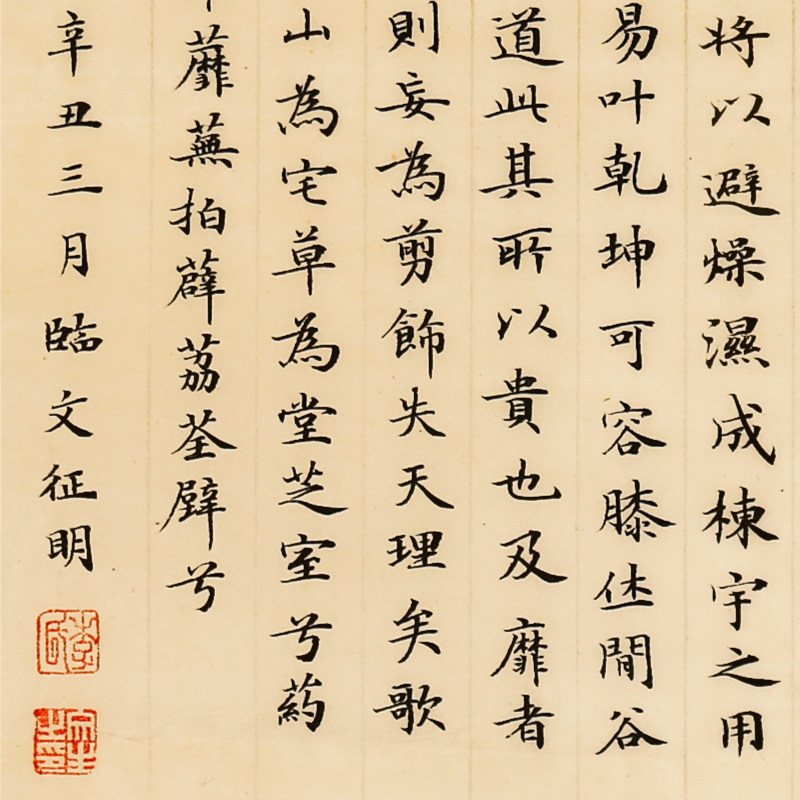 将以避燥濕成棟宇之用
易叶乾坤可容膝休閒谷
道此其所以貴也及靡者
則妄為剪飾失天理矣歌
山為宅草為堂芝室兮葯
蘼蕪拍薜荔荃壁兮
辛丑三月臨文征明